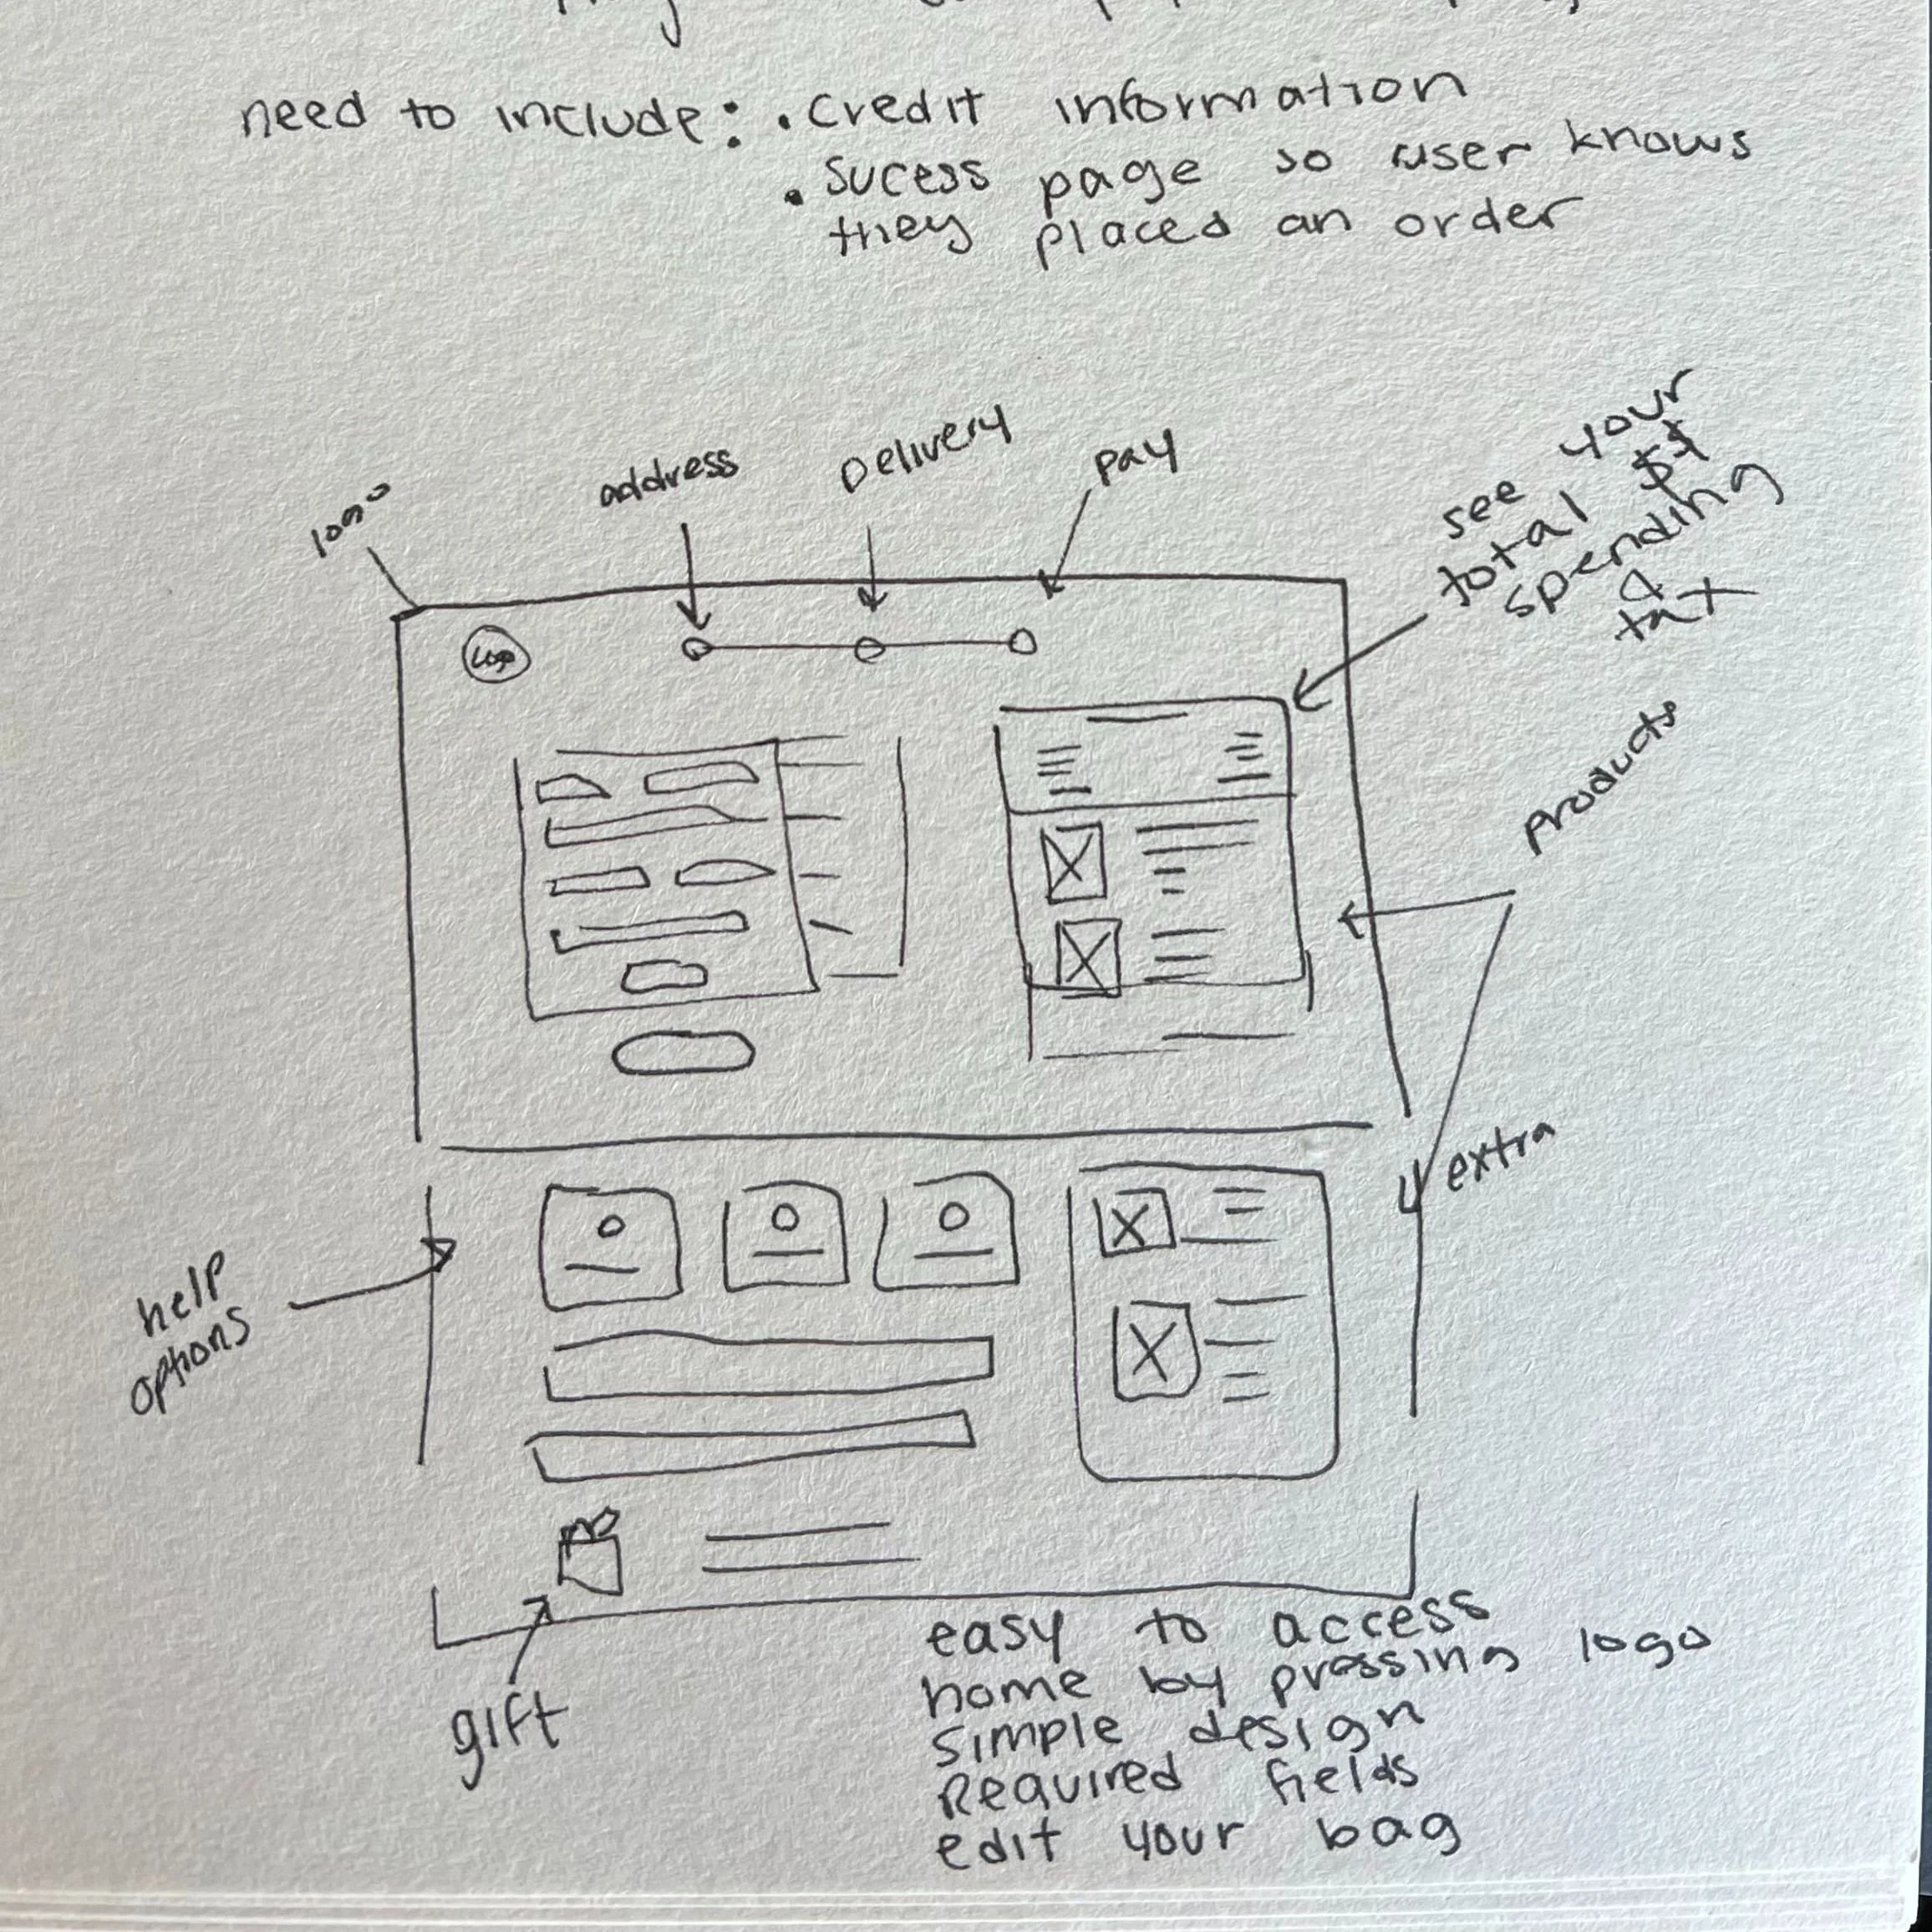 need to include: • credit information
• sucess page so user knows
they placed an order
logo
address
Delivery
pay
see your
total $$
spending
&
tax
Logo
products
extra
help
options
gift
easy to access
home by pressing logo
simple design
Required fields
edit your bag